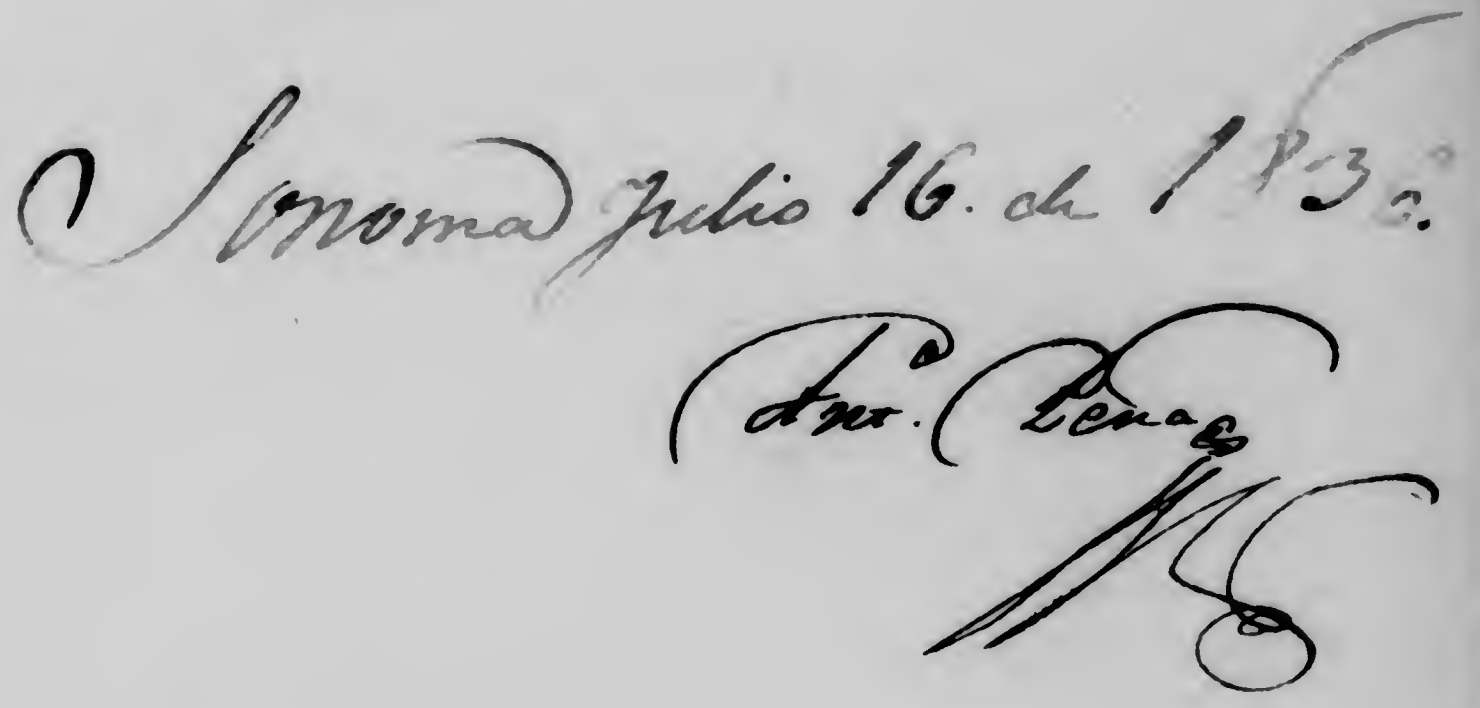 Sonoma Julio 16. de
Anto. Pena